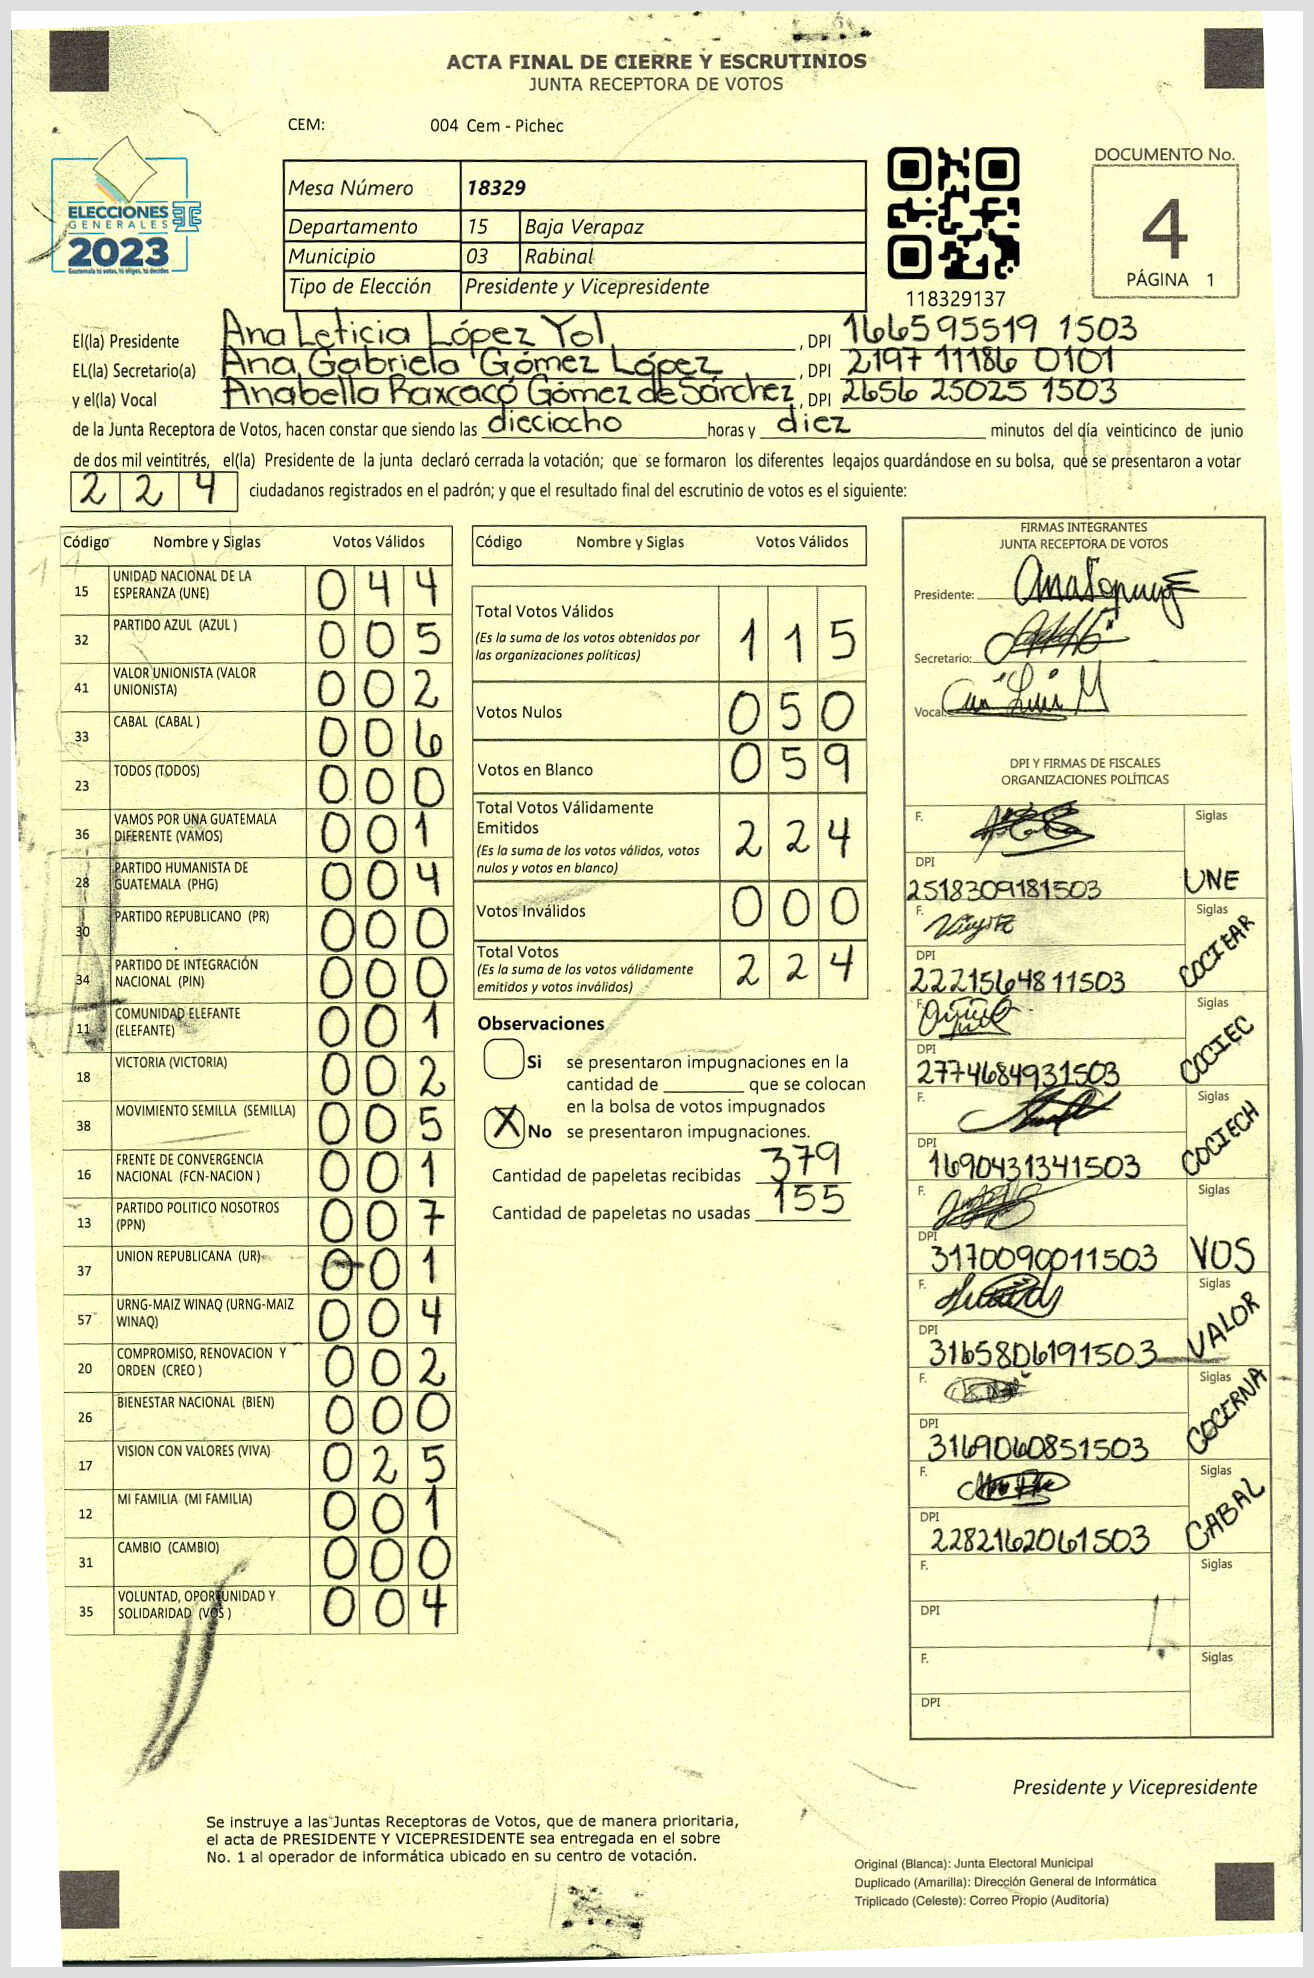 ACTA FINAL DE CIERRE Y ESCRUTINIOS
JUNTA RECEPTORA DE VOTOS
CEM: 004 Cem - Pichec
ELECCIONES
GENERALES
2023
Guatemala tú votas, tú eliges, tú decides
Mesa Número 18329
Departamento 15 Baja Verapaz
Municipio 03 Rabinal
Tipo de Elección Presidente y Vicepresidente
118329137
DOCUMENTO No.
4
PÁGINA 1
El(la) Presidente Ana Leticia López Yol, DPI 166595519 1503
EL(la) Secretario(a) Ana Gabriela Gómez López, DPI 2197 11186 0101
y el(la) Vocal Anabella Raxcacó Gómez de Sánchez, DPI 2656 25025 1503
de la Junta Receptora de Votos, hacen constar que siendo las dieciocho horas y diez minutos del día veinticinco de junio
de dos mil veintitrés, el(la) Presidente de la junta declaró cerrada la votación; que se formaron los diferentes legajos guardándose en su bolsa, que se presentaron a votar
224 ciudadanos registrados en el padrón; y que el resultado final del escrutinio de votos es el siguiente:
Código Nombre y Siglas Votos Válidos
15 UNIDAD NACIONAL DE LA ESPERANZA (UNE) 044
32 PARTIDO AZUL (AZUL ) 005
41 VALOR UNIONISTA (VALOR UNIONISTA) 002
33 CABAL (CABAL ) 006
23 TODOS (TODOS) 000
36 VAMOS POR UNA GUATEMALA DIFERENTE (VAMOS) 001
28 PARTIDO HUMANISTA DE GUATEMALA (PHG) 004
30 PARTIDO REPUBLICANO (PR) 000
34 PARTIDO DE INTEGRACIÓN NACIONAL (PIN) 000
11 COMUNIDAD ELEFANTE (ELEFANTE) 001
18 VICTORIA (VICTORIA) 002
38 MOVIMIENTO SEMILLA (SEMILLA) 005
16 FRENTE DE CONVERGENCIA NACIONAL (FCN-NACION ) 001
13 PARTIDO POLITICO NOSOTROS (PPN) 007
37 UNION REPUBLICANA (UR) 001
57 URNG-MAIZ WINAQ (URNG-MAIZ WINAQ) 004
20 COMPROMISO, RENOVACION Y ORDEN (CREO ) 002
26 BIENESTAR NACIONAL (BIEN) 000
17 VISION CON VALORES (VIVA) 025
12 MI FAMILIA (MI FAMILIA) 001
31 CAMBIO (CAMBIO) 000
35 VOLUNTAD, OPORTUNIDAD Y SOLIDARIDAD (VOS ) 004
Código Nombre y Siglas Votos Válidos
Total Votos Válidos 115
(Es la suma de los votos obtenidos por
las organizaciones políticas)
Votos Nulos 050
Votos en Blanco 059
Total Votos Válidamente
Emitidos 224
(Es la suma de los votos válidos, votos
nulos y votos en blanco)
Votos Inválidos 000
Total Votos 224
(Es la suma de los votos válidamente
emitidos y votos inválidos)
Observaciones
Si se presentaron impugnaciones en la
cantidad de ________ que se colocan
en la bolsa de votos impugnados
X No se presentaron impugnaciones.
Cantidad de papeletas recibidas 379
Cantidad de papeletas no usadas 155
FIRMAS INTEGRANTES
JUNTA RECEPTORA DE VOTOS
Presidente:
Secretario:
Vocal:
DPI Y FIRMAS DE FISCALES
ORGANIZACIONES POLÍTICAS
F. Siglas
DPI 2518309181503 UNE
F. Siglas
DPI 2221564811503 COCIEAR
F. Siglas
DPI 2774684931503 COCIEC
F. Siglas
DPI 1690431341503 COCIECH
F. Siglas
DPI 3170090011503 VOS
F. Siglas
DPI 3165806191503 VALOR
F. Siglas
DPI 3169060851503 COCERNA
F. Siglas
DPI 2282162061503 CABAL
F. Siglas
DPI
F. Siglas
DPI
Presidente y Vicepresidente
Se instruye a las Juntas Receptoras de Votos, que de manera prioritaria,
el acta de PRESIDENTE Y VICEPRESIDENTE sea entregada en el sobre
No. 1 al operador de informática ubicado en su centro de votación.
Original (Blanca): Junta Electoral Municipal
Duplicado (Amarilla): Dirección General de Informática
Triplicado (Celeste): Correo Propio (Auditoría)